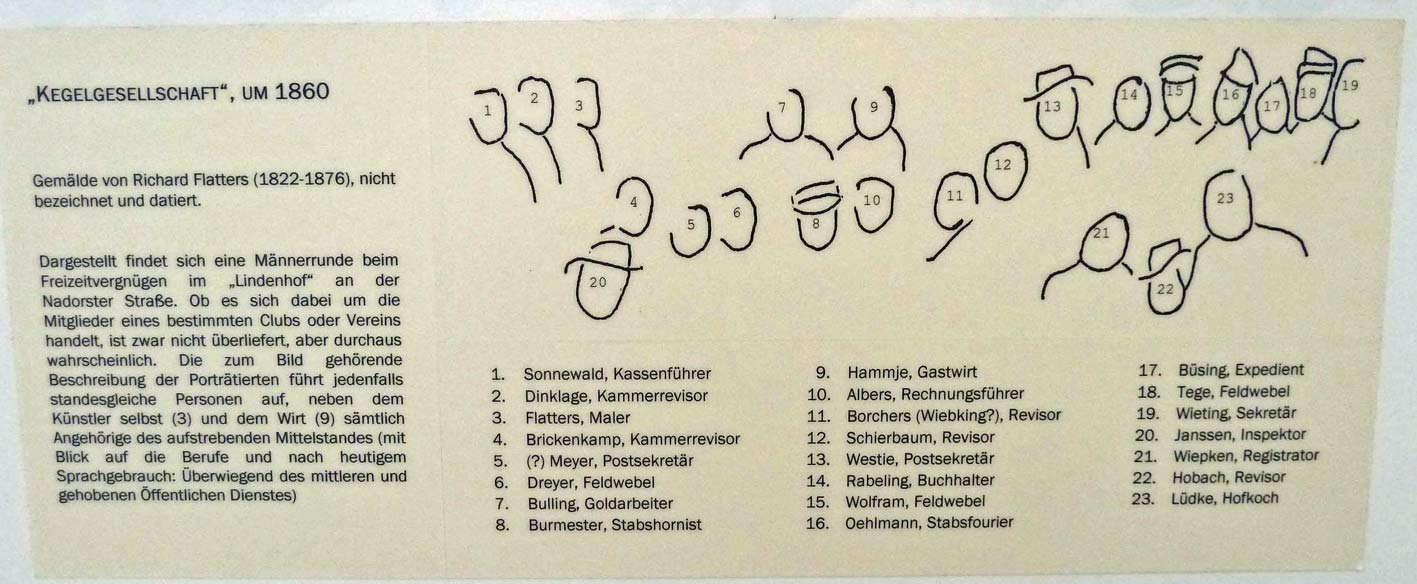 „KEGELGESELLSCHAFT“, UM 1860
Gemälde von Richard Flatters (1822-1876), nicht
bezeichnet und datiert.
Dargestellt findet sich eine Männerrunde beim
Freizeitvergnügen im „Lindenhof“ an der
Nadorster Straße. Ob es sich dabei um die
Mitglieder eines bestimmten Clubs oder Vereins
handelt, ist zwar nicht überliefert, aber durchaus
wahrscheinlich. Die zum Bild gehörende
Beschreibung der Porträtierten führt jedenfalls
standesgleiche Personen auf, neben dem
Künstler selbst (3) und dem Wirt (9) sämtlich
Angehörige des aufstrebenden Mittelstandes (mit
Blick auf die Berufe und nach heutigem
Sprachgebrauch: Überwiegend des mittleren und
gehobenen Öffentlichen Dienstes)
1
2
3
4
5
6
7
8
9
10
11
12
13
14
15
16
17
18
19
20
21
22
23
1. Sonnewald, Kassenführer
2. Dinklage, Kammerrevisor
3. Flatters, Maler
4. Brickenkamp, Kammerrevisor
5. (?) Meyer, Postsekretär
6. Dreyer, Feldwebel
7. Bulling, Goldarbeiter
8. Burmester, Stabshornist
9. Hammje, Gastwirt
10. Albers, Rechnungsführer
11. Borchers (Wiebking?), Revisor
12. Schierbaum, Revisor
13. Westie, Postsekretär
14. Rabeling, Buchhalter
15. Wolfram, Feldwebel
16. Oehlmann, Stabsfourier
17. Büsing, Expedient
18. Tege, Feldwebel
19. Wieting, Sekretär
20. Janssen, Inspektor
21. Wiepken, Registrator
22. Hobach, Revisor
23. Lüdke, Hofkoch